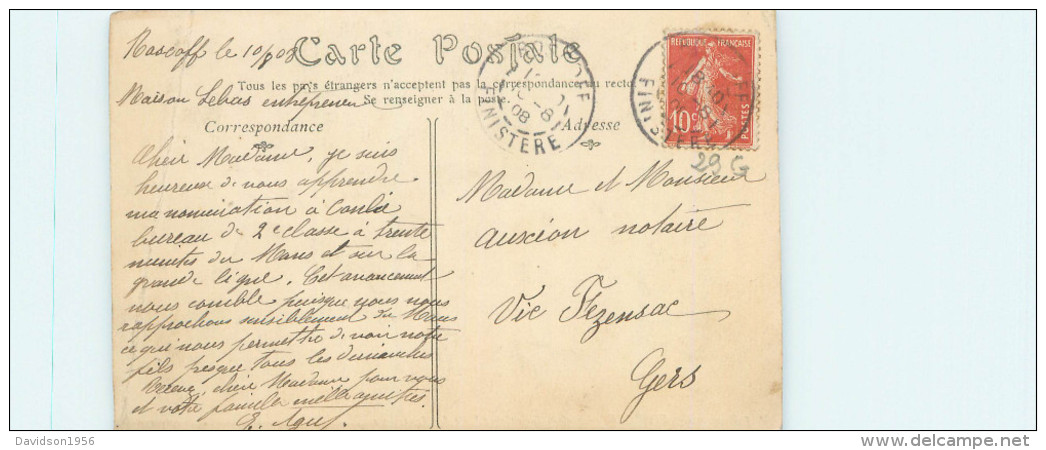 Roscoff le 10/08
Carte Postale
Tous les pays étrangers n'acceptent pas la correspondance au recto
Se renseigner à la poste
Maison Lebas entrepreneur
Correspondance
Adresse
Chère Madame, je suis
heureuse de vous apprendre
ma nomination à Conlie
bureau de 2e classe à trente
minutes du Mans et sur la
grande ligne. Cet avancement
nous comble puisque nous nous
rapprochons sensiblement du Mans
ce qui nous permettra de voir notre
fils presque tous les dimanches
chère Madame pour vous
et votre famille mille amitiés.
Madame et Monsieur
Auxéon notaire
Vic Fezensac
Gers
REPUBLIQUE FRANÇAISE
10c
POSTES
FINISTERE
08
FINISTERE
29 G
Davidson1956